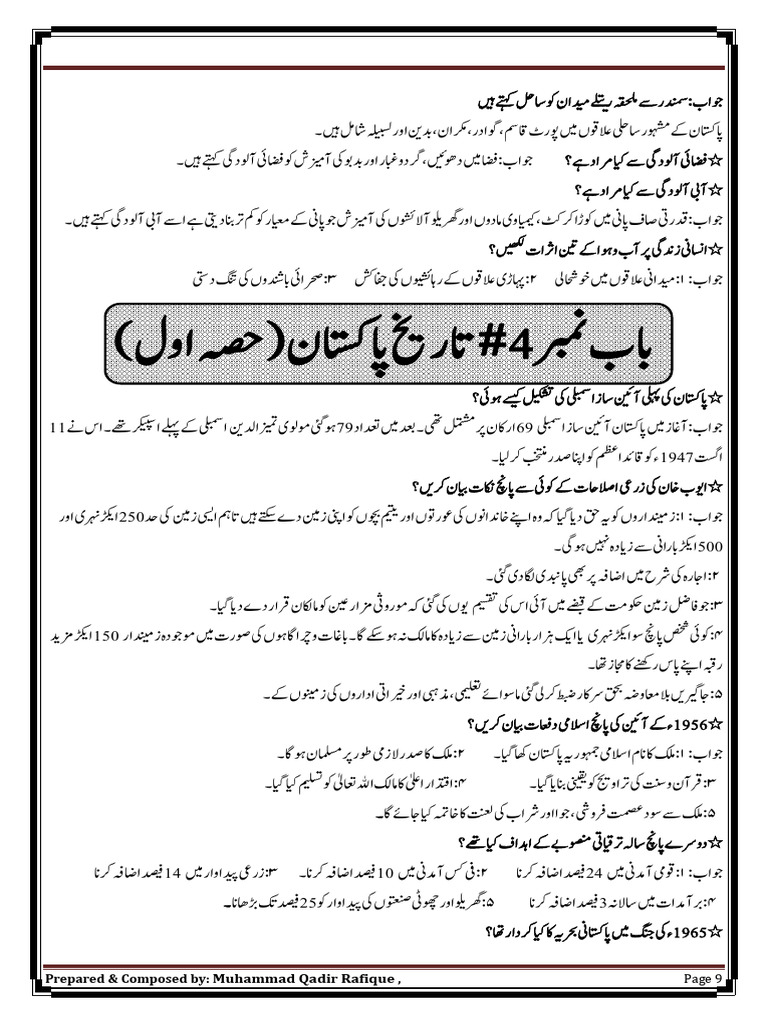 جواب: سمندر سے ملحقہ ریتلے میدان کو ساحل کہتے ہیں
پاکستان کے مشہور ساحلی علاقوں میں پورٹ قاسم، گوادر، مکران، بدین اور لسبیلہ شامل ہیں۔
☆فضائی آلودگی سے کیا مراد ہے؟ جواب: فضا میں دھوئیں، گرد و غبار اور بدبو کی آمیزش کو فضائی آلودگی کہتے ہیں۔
☆آبی آلودگی سے کیا مراد ہے؟
جواب: قدرتی صاف پانی میں کوڑا کرکٹ، کیمیاوی مادوں اور گھریلو آلائشوں کی آمیزش جو پانی کے معیار کو کم تر بنا دیتی ہے اسے آبی آلودگی کہتے ہیں۔
☆انسانی زندگی پر آب و ہوا کے تین اثرات لکھیں؟
جواب: ۱: میدانی علاقوں میں خوشحالی ۲: پہاڑی علاقوں کے رہائشیوں کی جفاکش ۳: صحرائی باشندوں کی تنگ دستی
باب نمبر 4# تاریخ پاکستان (حصہ اول)
☆پاکستان کی پہلی آئین ساز اسمبلی کی تشکیل کیسے ہوئی؟
جواب: آغاز میں پاکستان آئین ساز اسمبلی 69 ارکان پر مشتمل تھی۔ بعد میں تعداد 79 ہو گئی مولوی تمیز الدین اسمبلی کے پہلے اسپیکر تھے۔ اس نے 11
اگست 1947ء کو قائد اعظم کو اپنا صدر منتخب کر لیا۔
☆ایوب خان کی زرعی اصلاحات کے کوئی سے پانچ نکات بیان کریں؟
جواب: ۱: زمینداروں کو یہ حق دیا گیا کہ وہ اپنے خاندانوں کی عورتوں اور یتیم بچوں کو اپنی زمین دے سکتے ہیں تاہم ایسی زمین کی حد 250 ایکڑ نہری اور
500 ایکڑ بارانی سے زیادہ نہیں ہو گی۔
۲: اجارہ کی شرح میں اضافہ پر بھی پابندی لگا دی گئی۔
۳: جو فاضل زمین حکومت کے قبضے میں آئی اس کی تقسیم یوں کی گئی کہ موروثی مزارعین کو مالکان قرار دے دیا گیا۔
۴: کوئی شخص پانچ سو ایکڑ نہری یا ایک ہزار بارانی زمین سے زیادہ کا مالک نہ ہو سکے گا۔ باغات و چراگاہوں کی صورت میں موجودہ زمیندار 150 ایکڑ مزید
رقبہ اپنے پاس رکھنے کا مجاز تھا۔
۵: جاگیریں بلا معاوضہ بحق سرکار ضبط کر لی گئی ماسوائے تعلیمی، مذہبی اور خیراتی اداروں کی زمینوں کے۔
☆1956ء کے آئین کی پانچ اسلامی دفعات بیان کریں؟
جواب: ۱: ملک کا نام اسلامی جمہوریہ پاکستان رکھا گیا۔ ۲: ملک کا صدر لازمی طور پر مسلمان ہو گا۔
۳: قرآن و سنت کی تراویج کو یقینی بنایا گیا۔ ۴: اقتدار اعلیٰ کا مالک اللہ تعالیٰ کو تسلیم کیا گیا۔
۵: ملک سے سود عصمت فروشی، جوا اور شراب کی لعنت کا خاتمہ کیا جائے گا۔
☆دوسرے پانچ سالہ ترقیاتی منصوبے کے اہداف کیا تھے؟
جواب: ۱: قومی آمدنی میں 24 فیصد اضافہ کرنا ۲: فی کس آمدنی میں 10 فیصد اضافہ کرنا۔ ۳: زرعی پیداوار میں 14 فیصد اضافہ کرنا
۴: برآمدات میں سالانہ 3 فیصد اضافہ کرنا ۵: گھریلو اور چھوٹی صنعتوں کی پیداوار کو 25 فیصد تک بڑھانا۔
☆1965ء کی جنگ میں پاکستانی بحریہ کا کیا کردار تھا؟
Prepared & Composed by: Muhammad Qadir Rafique , Page 9